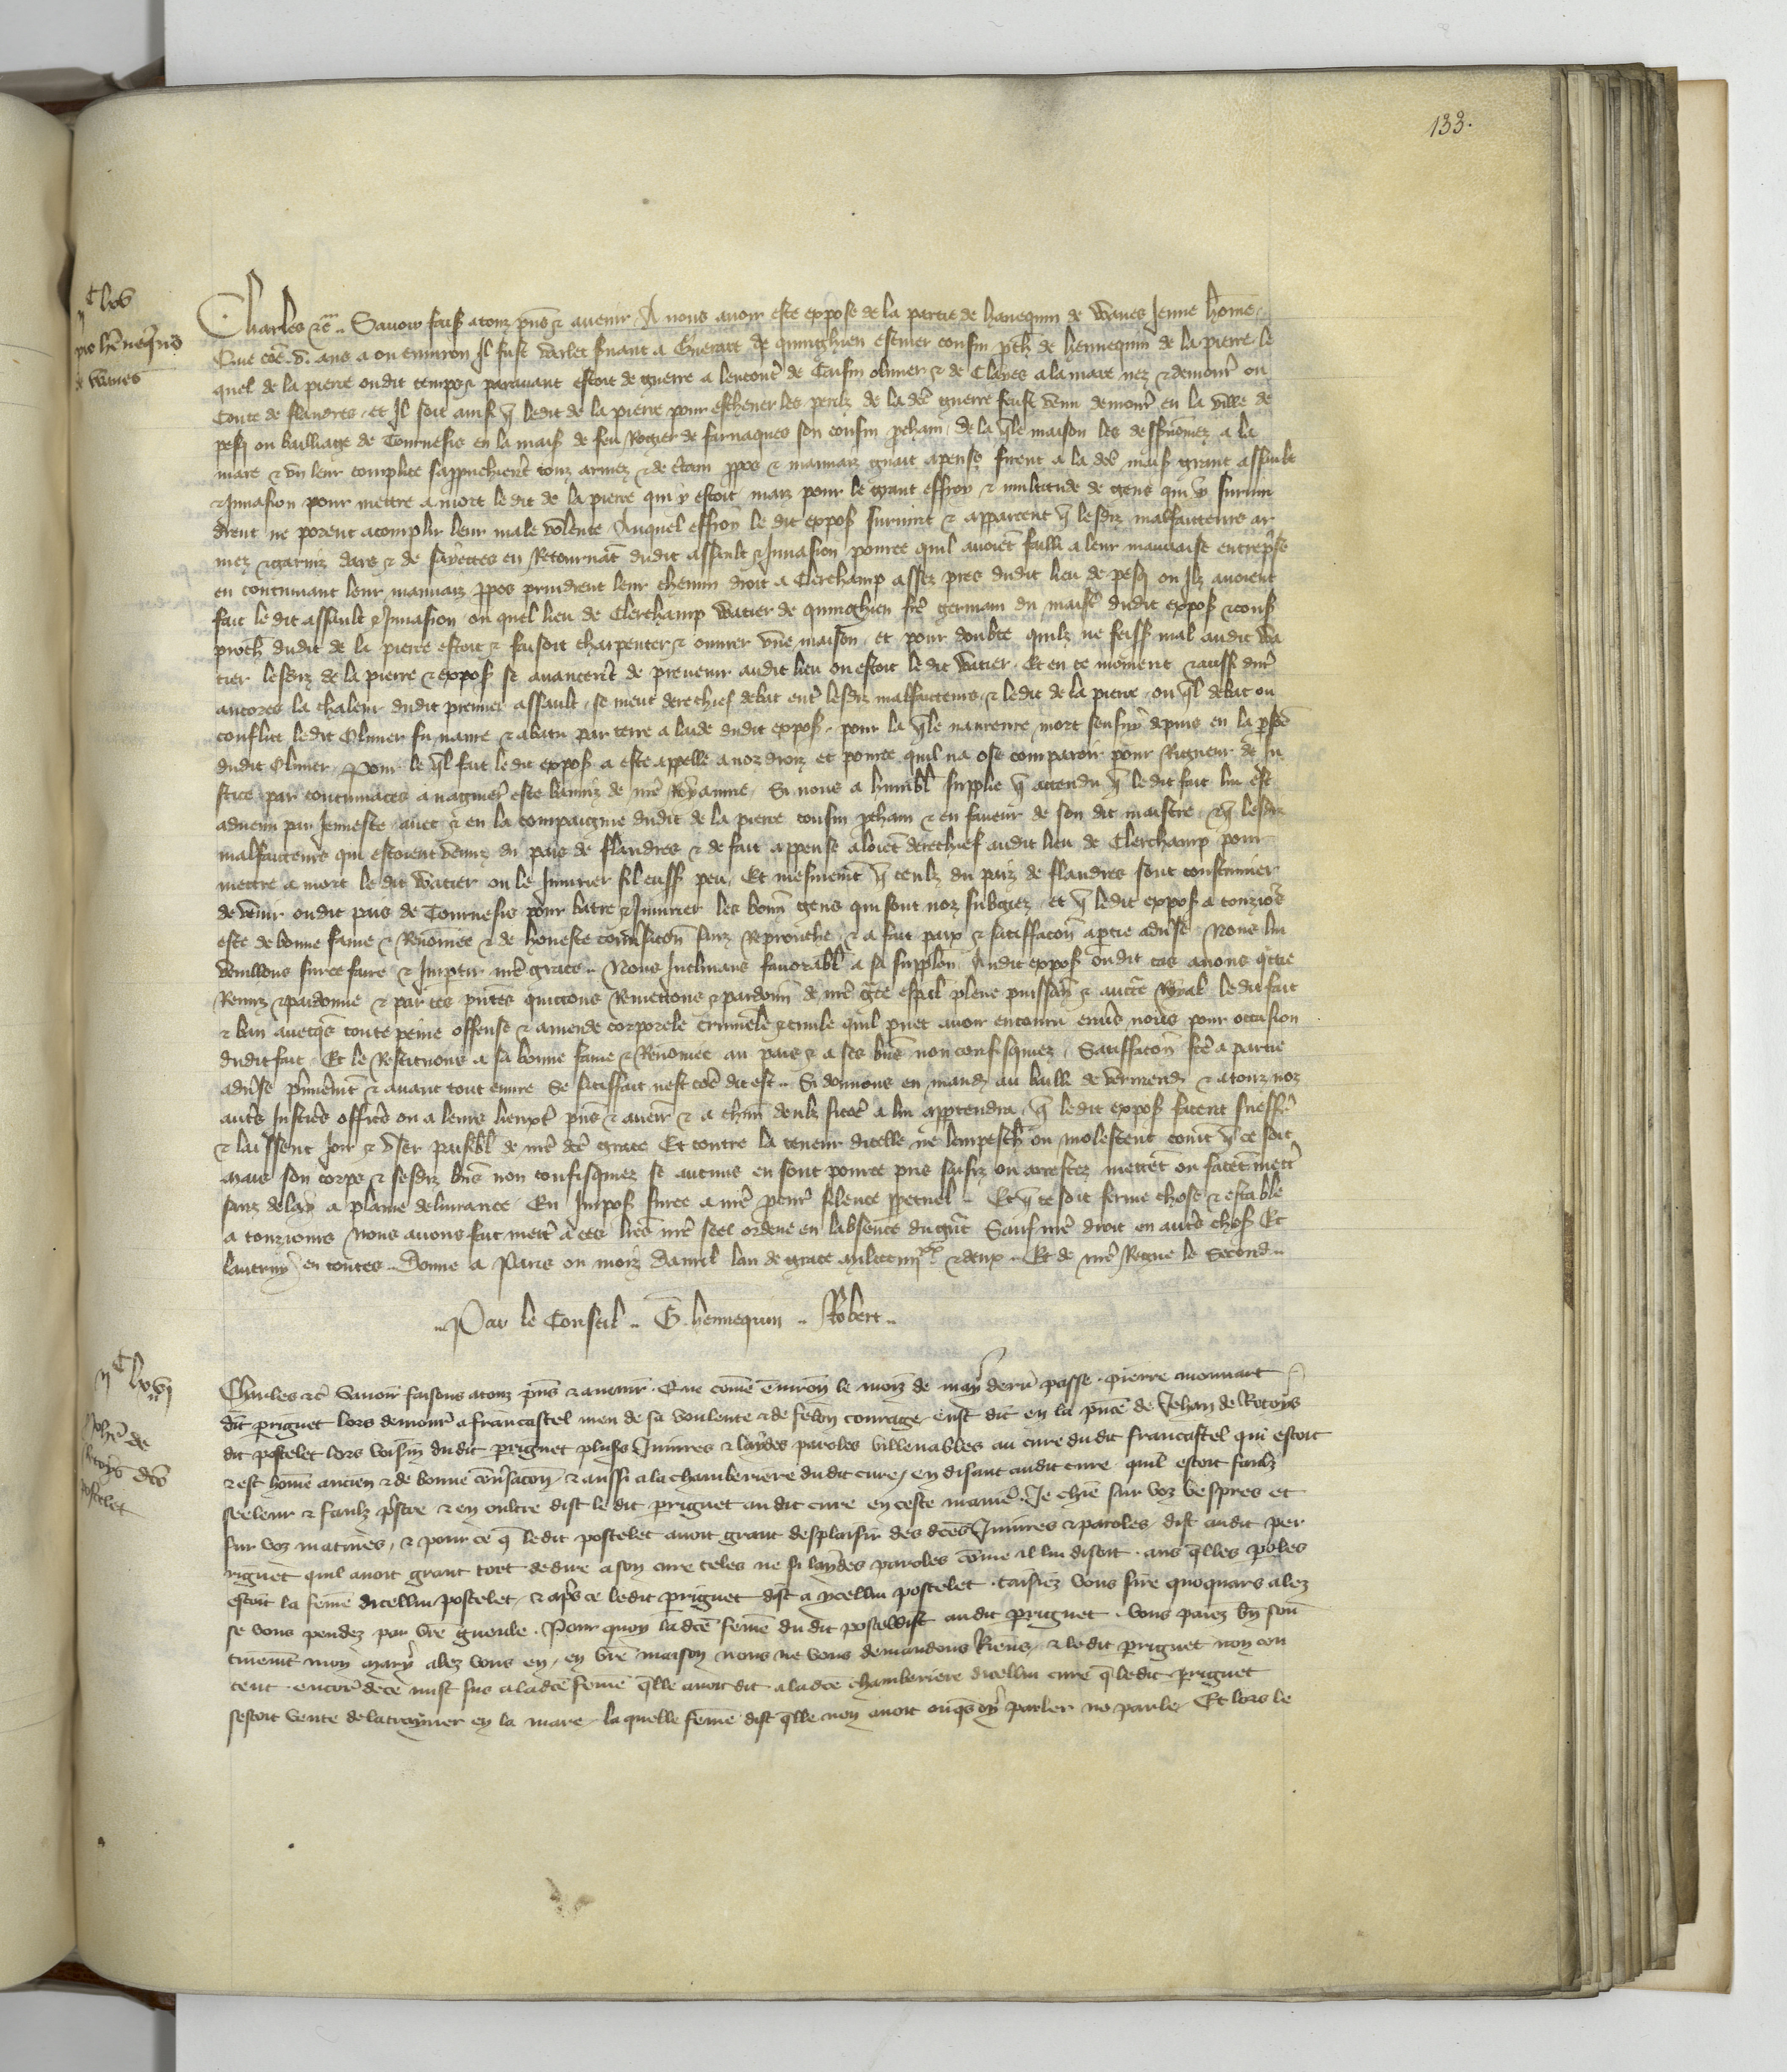 133.
Charles etc. Savoir faiss a touz pñs et avenir A nous avoir este expose de la partie de hanequin de Wanes Jenne hõme
Que cõe .v. ans a ou environ Il fust varlet servant a Guerart de quinghien escuier cousin pch de hennequin de la pierre le
quel de la pierre oudit temps et paravant estoit de guerre a lencont de Olivier et de Claies a la mare nez et demour ou
Conte de flandres et Il soit ainsi q ledit de la pierre pour eschever les perilz de la dce guerre feust venu demour en la ville de
pesq ou bailliage de Tournesis en la mais de feu Rogier de farnaques son cousin pcham de la qle maison les dessusnõmez a la
mare et un leur complice sapprochierent touz armez et de ctain ppos et mauvaiz guait apense firent a la dce mais grant assault
et Invasion pour mettre a mort le dit de la pierre qui y estoit maiz pour le grant effroy et multitude de gens qui y survin
drent ne porent acomplir leur male volente Auquel effroy le dit expos survint et apparcent q lesdiz malfaicteurs ar
mez et garniz dars et de sayettes en Retournat dudit assault et Invasion pource quil avoiet failli a leur mauvaise entrepse
en continuant leur mauvaiz ppos prindrent leur chemin droit a Clerchamp assez pres dudit lieu de pesq ou Ilz avoient
fait le dit assault et Invasion ou quel lieu de Clerchamp Watier de quinghien fre germain du maist dudit expos et cous
proch dudit de la pierre estoit et faisoit charpenter et ouvrer une maison et pour doubte quilz ne feiss mal audit Wa
tier lesdiz de la pierre et expos se avancerent de prevenir audit lieu ou estoit le dit Watier Et en ce moment
ancores la chaleur dudit premier assault se meut derechief debat entr lesdiz malfaicteurs et ledit de la pierre ou ql debat ou
conflict ledit Olivier fu navre et abatu par terre a laide dudit expos pour la qle navreure mort sensuy depuis en la psõe
dudit Olivier Pour le ql fait ledit expos a este appelle a noz droiz et pource quil na ose comparoir pour Rigueur de Ju
stice par contumaces a nagueres este banniz de nre Royaume Si nous a humbl supplie q attendu q le dit fait lui est
advenu par Jennesce avec et en la compaignie dudit de la pierre cousin pcham et en faveur de son dit maistre et q lesdiz
malfaicteurs qui estoient venuz du pais de flandres et de fait appense aloiet derechief audit lieu de Clerchamp pour
mettre a mort le dit Watier ou le Injurier sil eussent peu Et mesmemt q ceulz du paiz de flandres sont coustumier
de venir oudit pais de Tournesis pour batre et Injurier les bonn gens qui sont noz subgiez et q ledit expos a touzjors
este de bonne fame et Renõmee et de honeste consacon sanz Reprouche et a fait paix et satisfaccon a ptie advse Nous lui
vueillons surce faire et Imptir nre grace Nous Inclinans favorabl a sa supplon Audit expos oudit cas avons qtte
Remiz et pardonne et par ces pntes quittons Remettons et pardonn de nre gce espal plene puissan et aucte Royal le dit fait
et ban avecqs toute peine offense et amende corporele criminele et civile quil puet avoir encouru envs nous pour occasion
dudit fait Et le Restituons a sa bonne fame et Renõmee au pais et a ses bns non confisquez Satisfacon fce a partie
advse prmemt et avant tout euvre Se satisffait nest cõe dit est Si donnons en mand au bailli de vermend et a touz noz
auts Justics offics ou a leurs lieuxt pns et avenir et a chun deulz sicõe a lui apptendra q ledit expos facent sueffr
et laissent joir et user paisibl de nre dce grace Et contre la teneur dicelle ne lempesch ou molestent conmt q ce soit
mais son corps et sesdiz bns non confisquez se aucuns en sont pource pris saisiz ou arrestez mettet ou facet mett
sanz delay a plaine delivrance En Impos surce a nre pcur silence ppetuel Et q ce soit ferme chose et estable
a touzjours Nous avons fait mettre a ces lres nre scel ordene en labsence du grant Sauf nre droit en auts chos Et
lautruy en toutes Donne a Paris ou moiz davril lan de grace mil ccc iiii xx et deux Et de nre Regne le Second
Par le Conseil G. hennequin Robert
Charles etc Savoir faisons a touz pns et avenir Que cõme environ le moiz de may derr passe pierre monnart
dit periguet lors demour a francastel meu de sa voulente et de felon courage eust dit en la pnce de Jehan de Rotoys
dit postelet lors voisin dudit periguet pluss Injures et laydes paroles villenables au cure dudit francastel qui estoit
et est hõme ancien et de bonne consacon et aussi a la chamberiere dudit cure en disant audit cure quil estoit faulz
seeleur et faulz pstre et en oultre dist le dit periguet audit cure en ceste manie Je chie sur voz vespres et
sur voz matines et pour ce q le dit postelet avoit grant desplaisir des dces Injures et paroles dist audit per
riguet quil avoit grant tort de dire a son cure teles ne si laydes paroles cõme il lui disoit aus qlles poles
estoit la feme dicellui postelet et aprs ce ledit periguet dist a ycellui postelet taisiez vous sire quoquars alez
se vous pendez par vre gueule Pour quoy la dce feme du dit postellist audit periguet vous parez bn sou
tivemt mon mary alez vous en en vre maison nous ne vous demandons Riens et ledit periguet non con
tent encor de ce mist sus a la dce feme qlle avoit dit a la dce chamberiere dicellui cure q ledit periguet
sestoit vente de la trayner en la mare laquelle feme dist qlle nen avoit onqs oy parler ne parle Et lors le